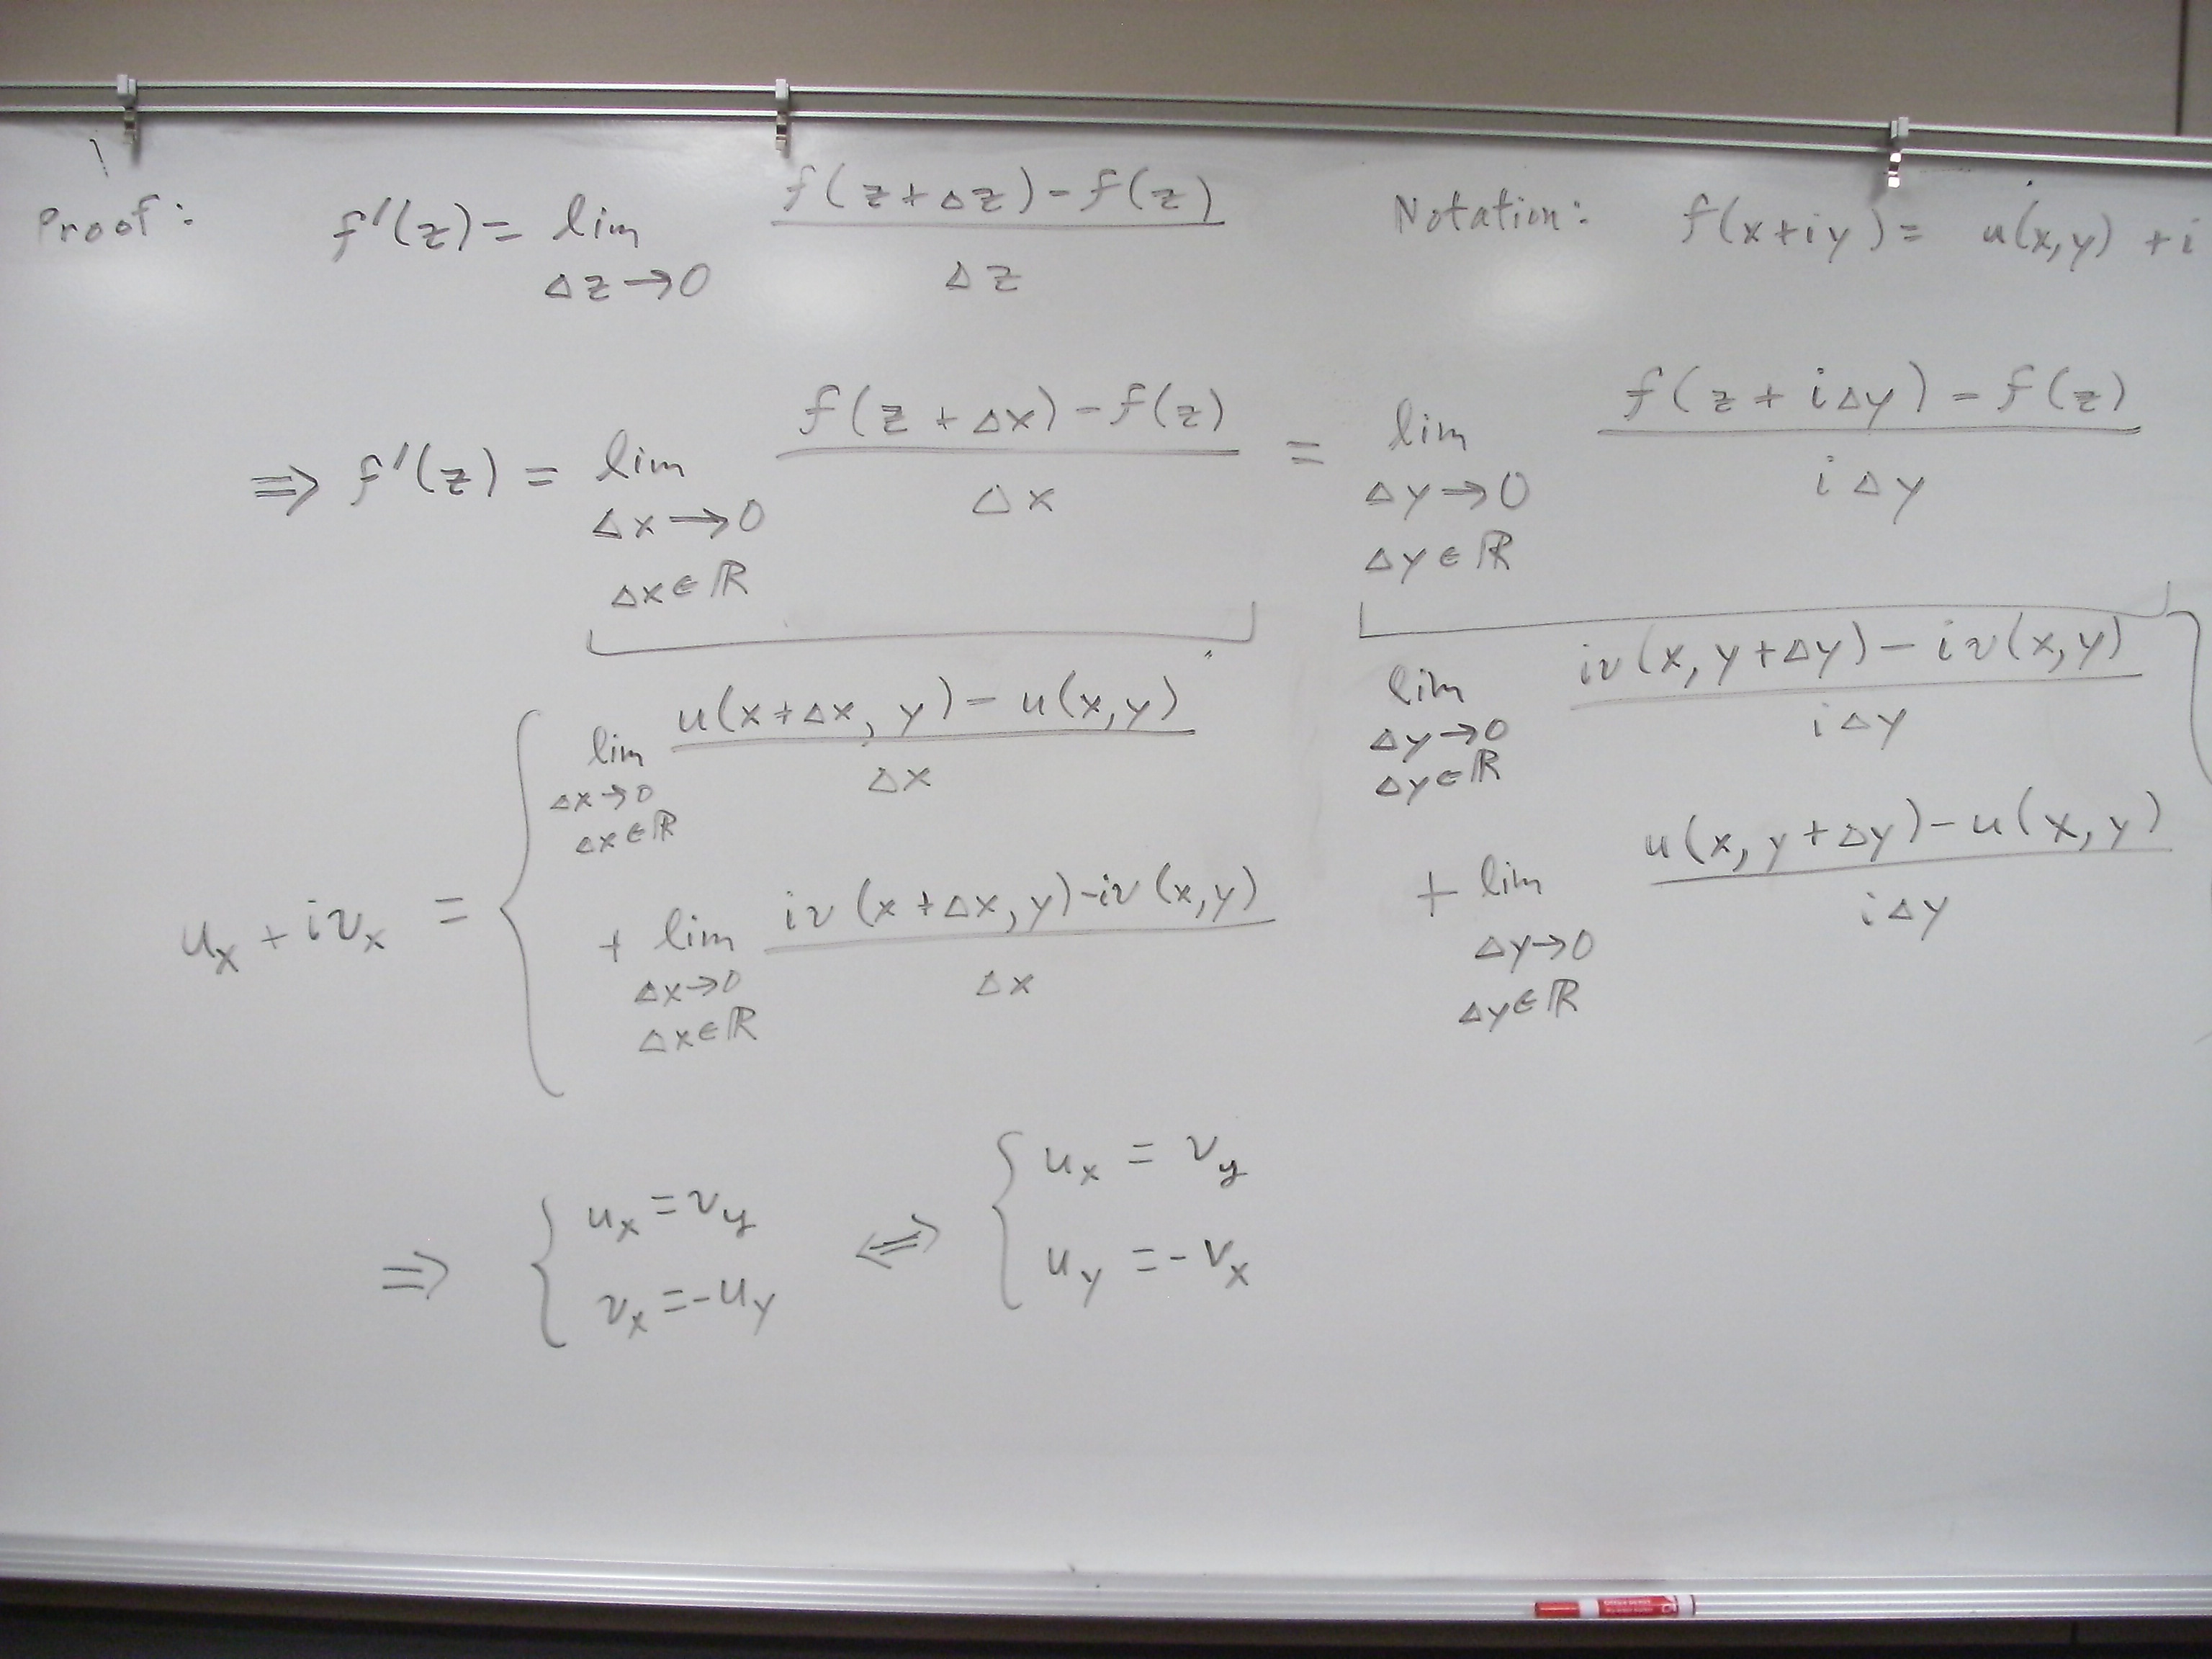 Proof: f'(z) = lim_{Δz→0} \frac{f(z+Δz)-f(z)}{Δz} Notation: f(x+iy) = u(x,y) + i
⇒ f'(z) = lim_{Δx→0, Δx∈ℝ} \frac{f(z+Δx)-f(z)}{Δx} = lim_{Δy→0, Δy∈ℝ} \frac{f(z+iΔy)-f(z)}{iΔy}
lim_{Δx→0, Δx∈ℝ} \frac{u(x+Δx, y)-u(x,y)}{Δx} lim_{Δy→0, Δy∈ℝ} \frac{iv(x, y+Δy)-iv(x,y)}{iΔy}
u_x + iv_x = { + lim_{Δx→0, Δx∈ℝ} \frac{iv(x+Δx,y)-iv(x,y)}{Δx} + lim_{Δy→0, Δy∈ℝ} \frac{u(x, y+Δy)-u(x,y)}{iΔy}
⇒ { u_x = v_y ⇔ { u_x = v_y
v_x = -u_y u_y = -v_x